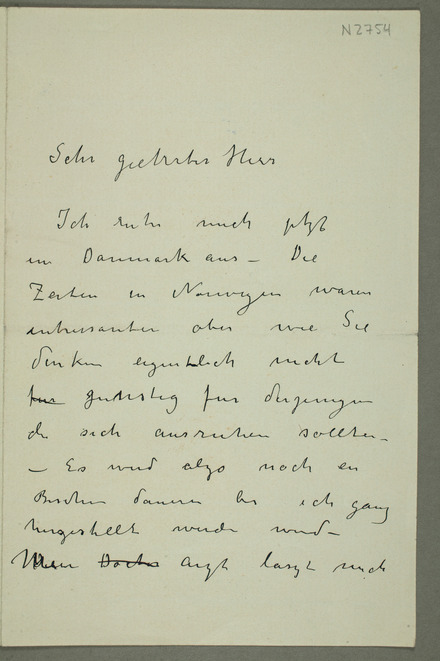 N 2754
Sehr geehrter Herr
Ich ruhe mich jetzt
in Danmark aus – Die
Zeiten in Norwegen waren
intressanter aber wie Sie
denken eigentlich nicht
fur gunstig fur diejenigen
die sich ausruhen sollten –
– Es wird also noch ein
Bischen dauern bis ich ganz
hergestellt werde wird –
Mein Docter arzt laszt mich